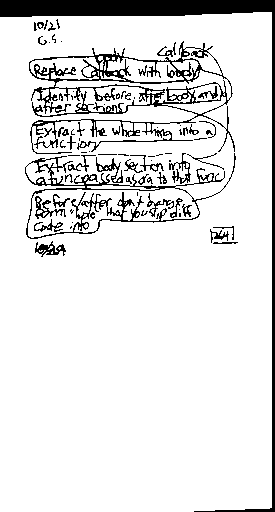 10/21
G.S.
body callback
Replace Callback with body
Identify before, after body, and
after sections
Extract the whole thing into a
function
Extract body section into
a func passed as a to that func
Before/after don't change
form "hole" that you slip diff
code into
10/29
264